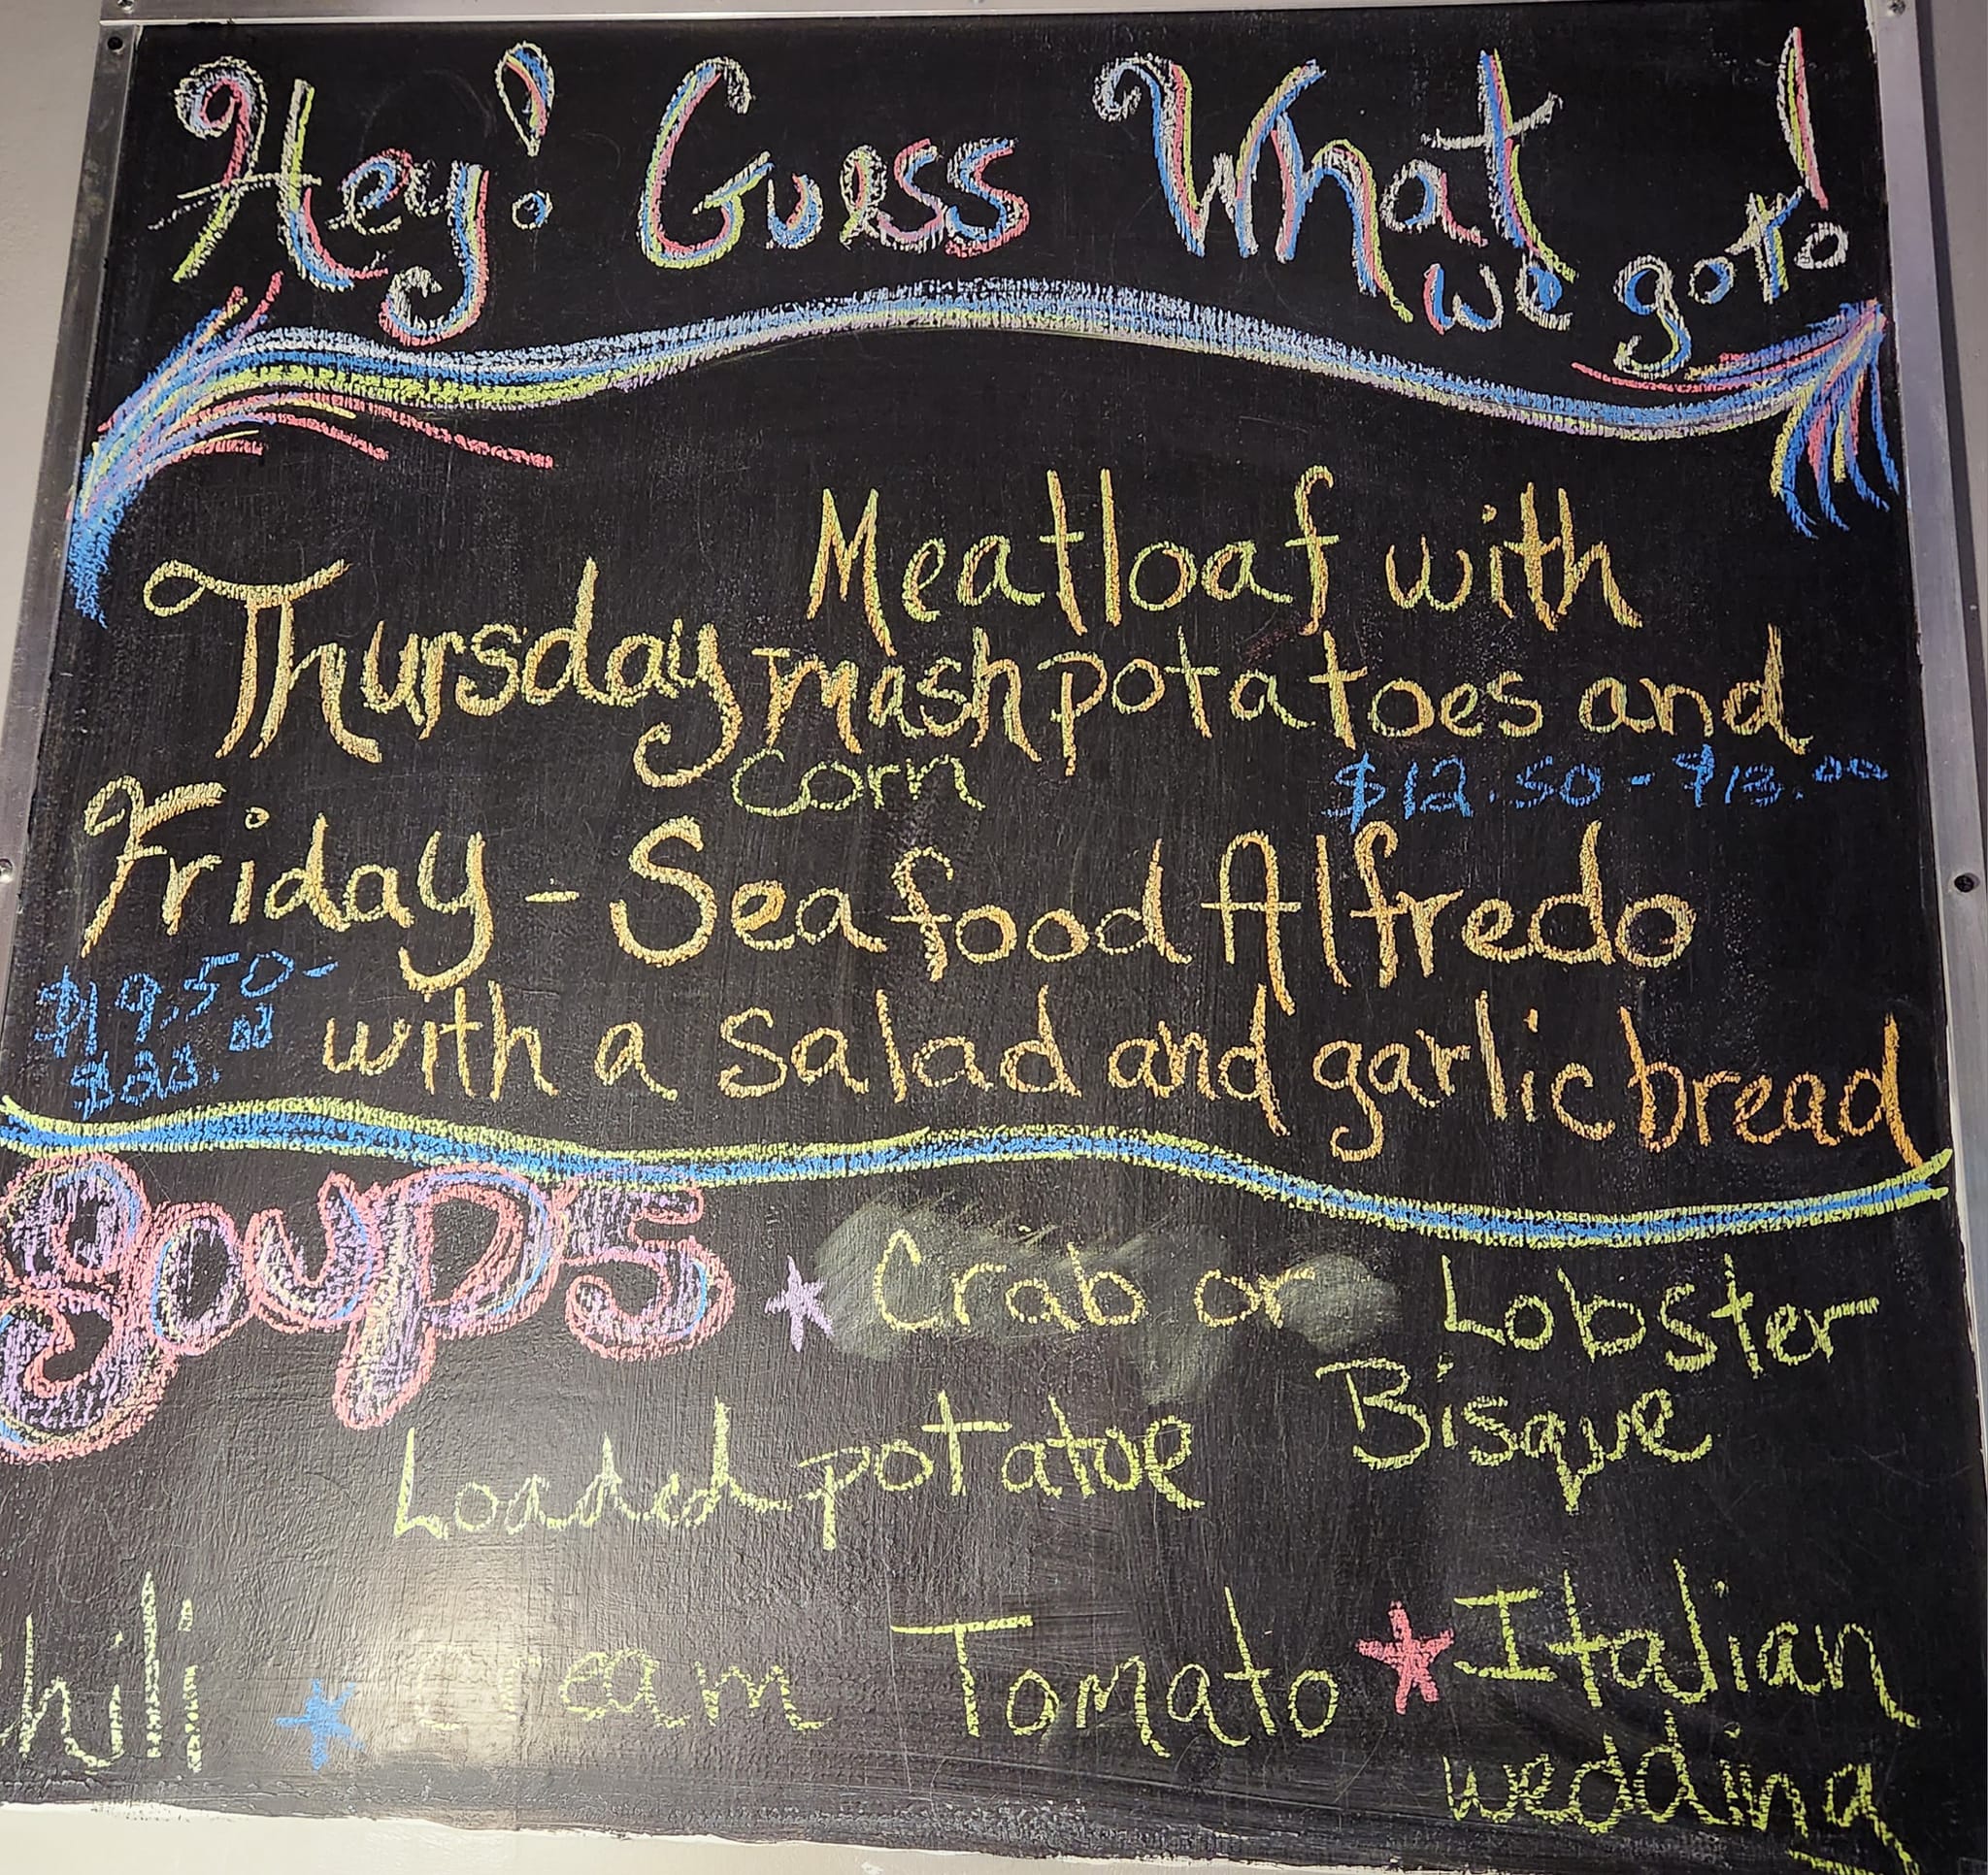 Hey! Guess What
we got!
Meatloaf with
Thursday mash potatoes and
corn $12.50 - $13.00
Friday - Seafood Alfredo
$19.50 -
with a salad and garlic bread
Soups * Crab or Lobster
Bisque
Loaded potatoe
hili * Cream Tomato * Italian
wedding